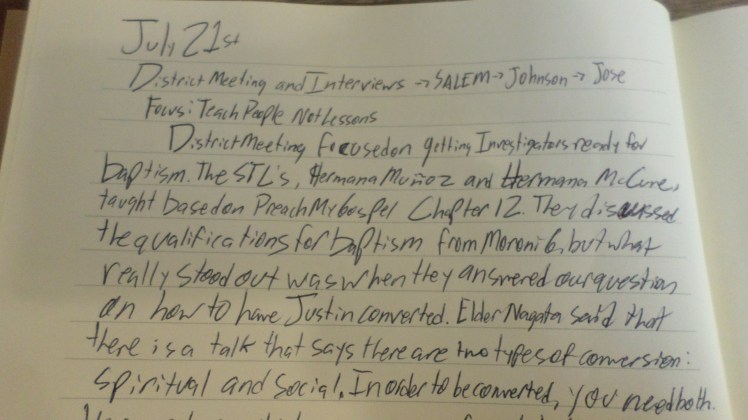 July 21st
District Meeting and Interviews → SALEM → Johnson → Jose
Focus: Teach People Not Lessons
District Meeting focused on getting Investigators ready for
baptism. The STL's, Hermana Muñoz and Hermana McCure,
taught based on Preach My Gospel Chapter 12. They discussed
the qualifications for baptism from Moroni 6, but what
really stood out was when they answered our question
on how to have Justin converted. Elder Nagata said that
there is a talk that says there are two types of conversion:
Spiritual and Social. In order to be converted, you need both.